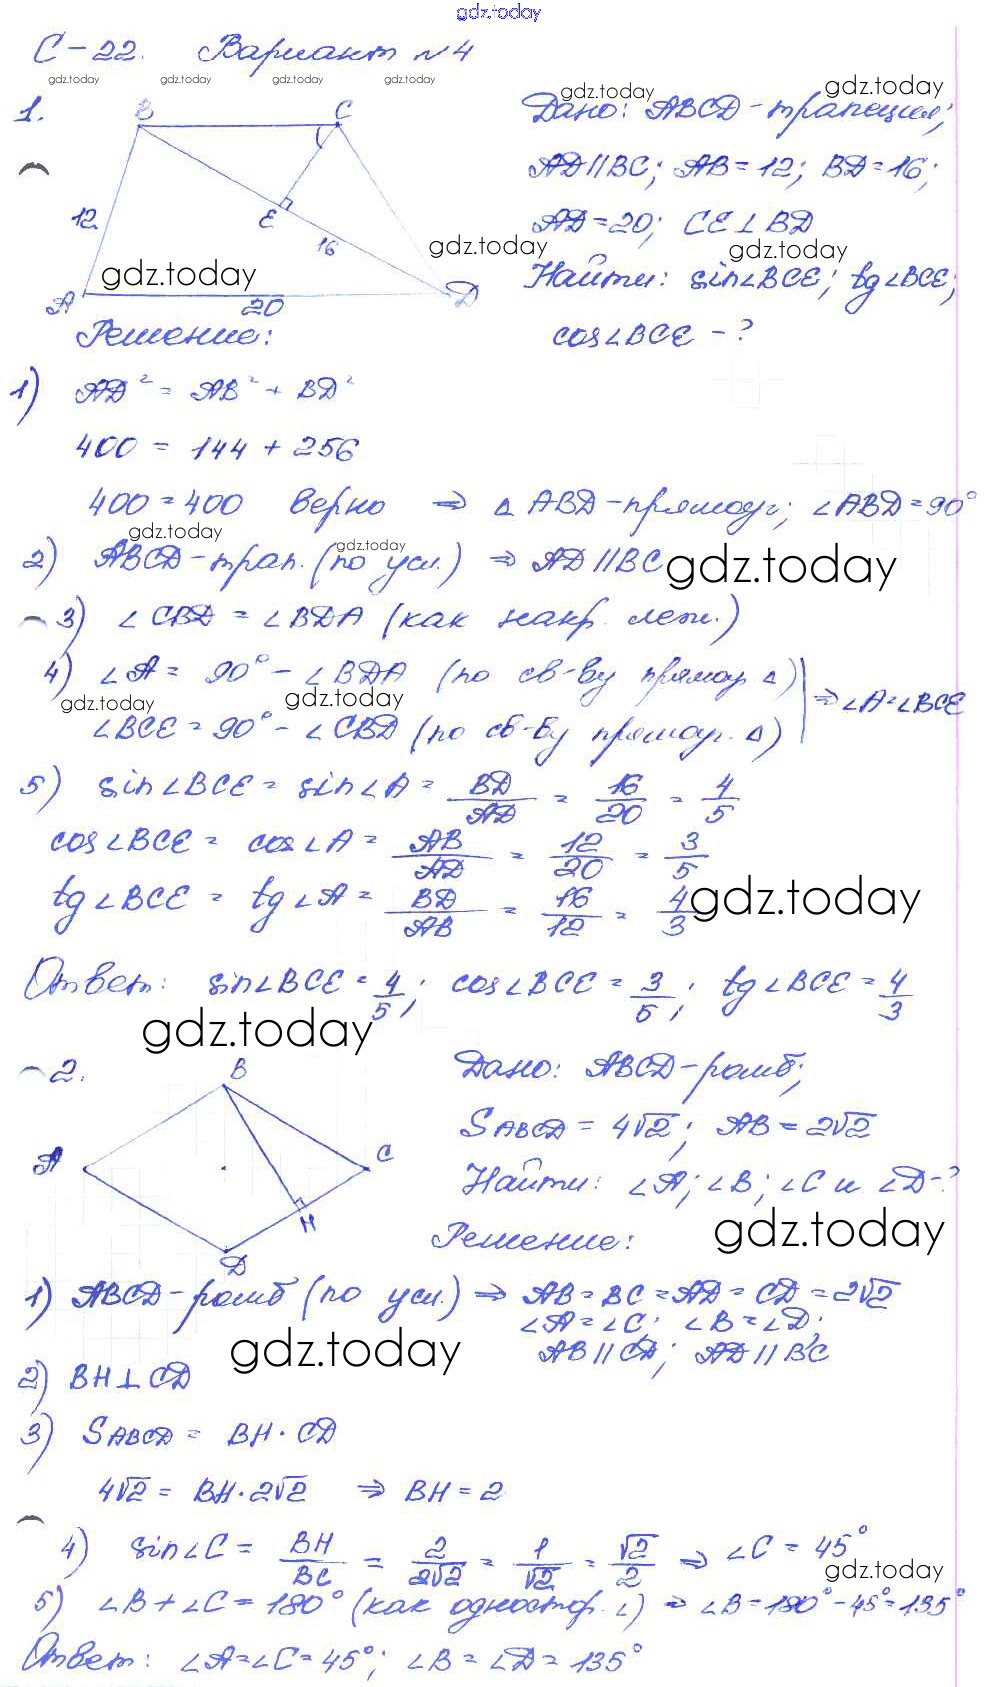 gdz.today
С-22. Вариант №4
gdz.today gdz.today gdz.today gdz.today
gdz.today gdz.today
1. B C Дано: ABCD-трапеция;
AD||BC; AB=12; BD=16;
12 E 16 AD=20; CE⊥BD
gdz.today gdz.today gdz.today
A 20 D Найти: sin∠BCE; tg∠BCE;
Решение: cos∠BCE - ?
1) AD² = AB² + BD²
400 = 144 + 256
400 = 400 верно ⇒ △ABD-прямоуг; ∠ABD=90°
gdz.today gdz.today
2) ABCD-трап. (по усл.) ⇒ AD||BC gdz.today
3) ∠CBD = ∠BDA (как накр. леж.)
4) ∠A = 90° - ∠BDA (по св-ву прямоуг △)
gdz.today gdz.today
∠BCE = 90° - ∠CBD (по св-ву прямоуг. △) ⇒ ∠A=∠BCE
5) sin∠BCE = sin∠A = BD/AD = 16/20 = 4/5
cos∠BCE = cos∠A = AB/AD = 12/20 = 3/5
tg∠BCE = tg∠A = BD/AB = 16/12 = 4/3 gdz.today
Ответ: sin∠BCE = 4/5; cos∠BCE = 3/5; tg∠BCE = 4/3
gdz.today
2. B Дано: ABCD-ромб;
S ABCD = 4√2; AB = 2√2
A C Найти: ∠A; ∠B; ∠C и ∠D-?
H gdz.today
D Решение:
1) ABCD-ромб (по усл.) ⇒ AB = BC = AD = CD = 2√2
∠A = ∠C; ∠B = ∠D;
gdz.today AB||CD; AD||BC
2) BH⊥CD
3) S ABCD = BH·CD
4√2 = BH·2√2 ⇒ BH = 2
4) sin∠C = BH/BC = 2/2√2 = 1/√2 = √2/2 ⇒ ∠C = 45°
gdz.today
5) ∠B+∠C = 180° (как одностор. ∠) ⇒ ∠B=180°-45°=135°
Ответ: ∠A=∠C=45°; ∠B=∠D=135°